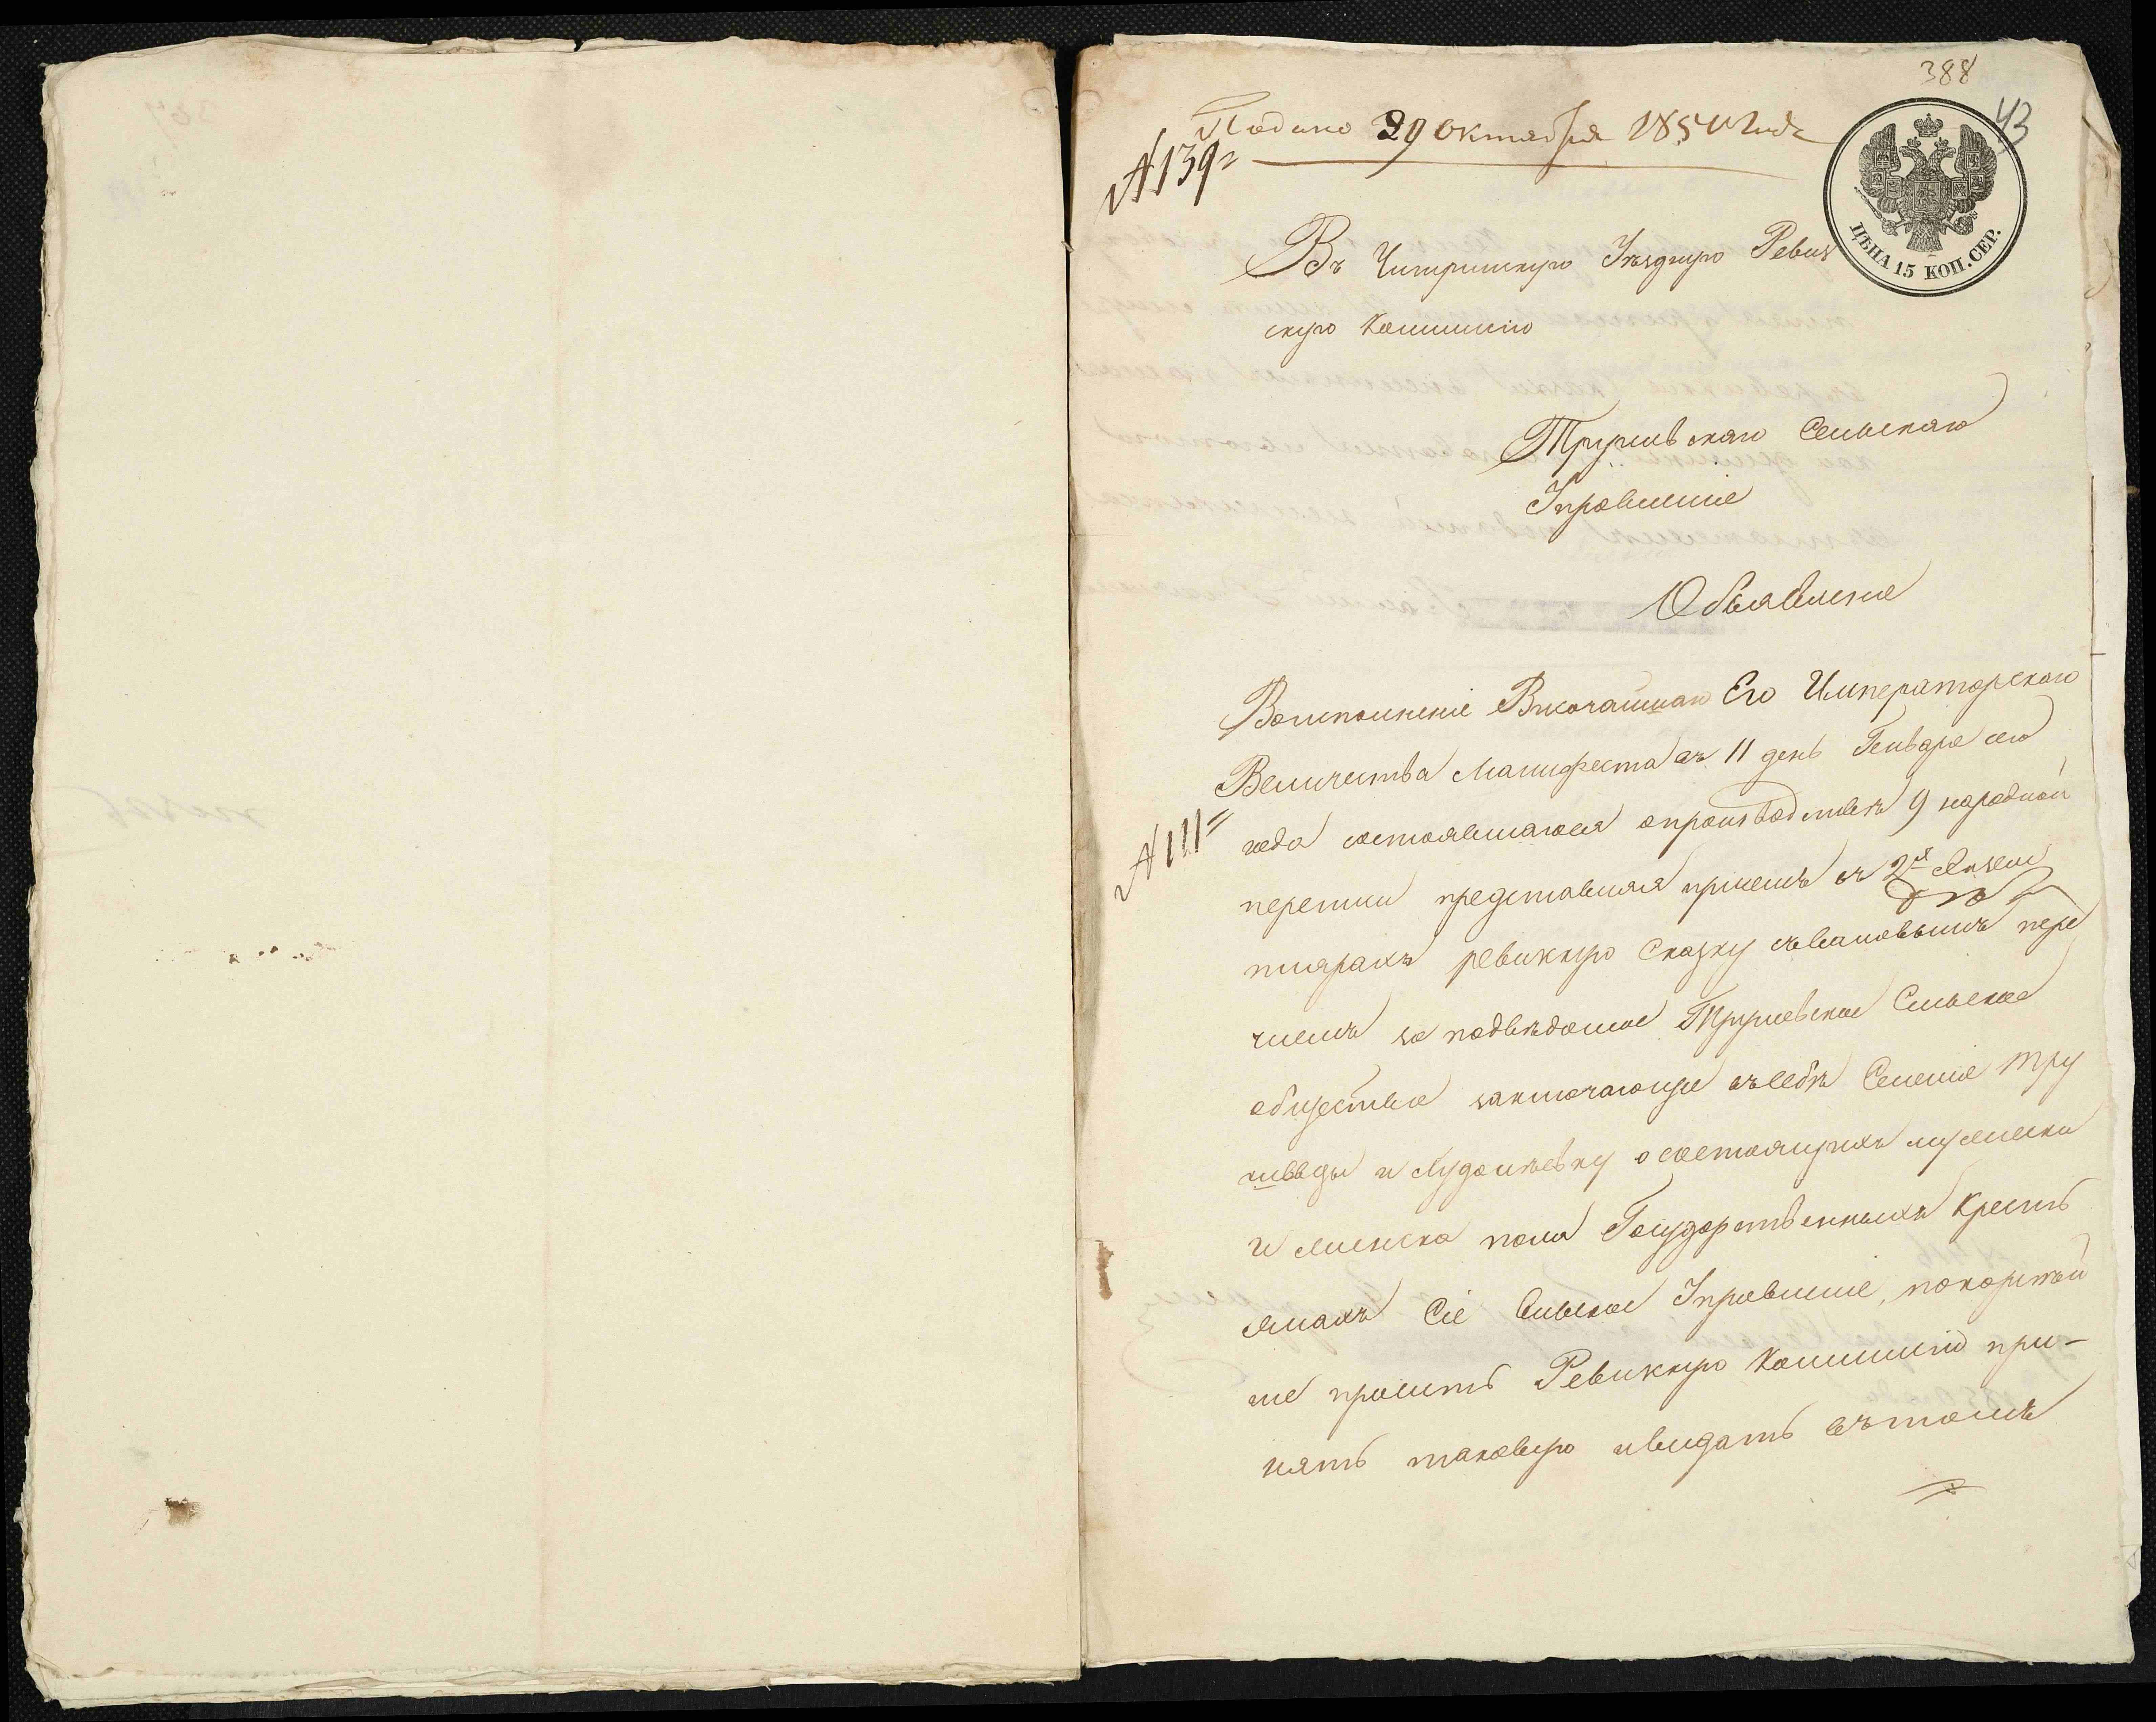 388
43
Подано 29 Октября 1850 года
№ 139
ЦѢНА 15 КОП. СЕР.
Въ Чигиринскую Уѣздную Ревиз
скую Коммисію
Трушевскаго Сельскаго
Управленія
Объявленіе
Воисполненіе Височайшаго Его Императорскаго
Величества Манифеста въ 11 день Генваря сего
№ 111
года состоявшагося опроизводствѣ 9 народной
переписи представляя присемъ въ 2хъ Экзем
плярахъ ревизкую Сказку
чнемъ за подвѣдомое Трушевское Сельское
общество заключающее въ себѣ Селеніе Тру
шивци и о состоящихъ мужеска
и женска пола Государственныхъ Кресть
янахъ Сіе Сельское Управленіе, покорнѣй
ше проситъ Ревизкую Коммисію при-
нять таковую ивидать втомъ